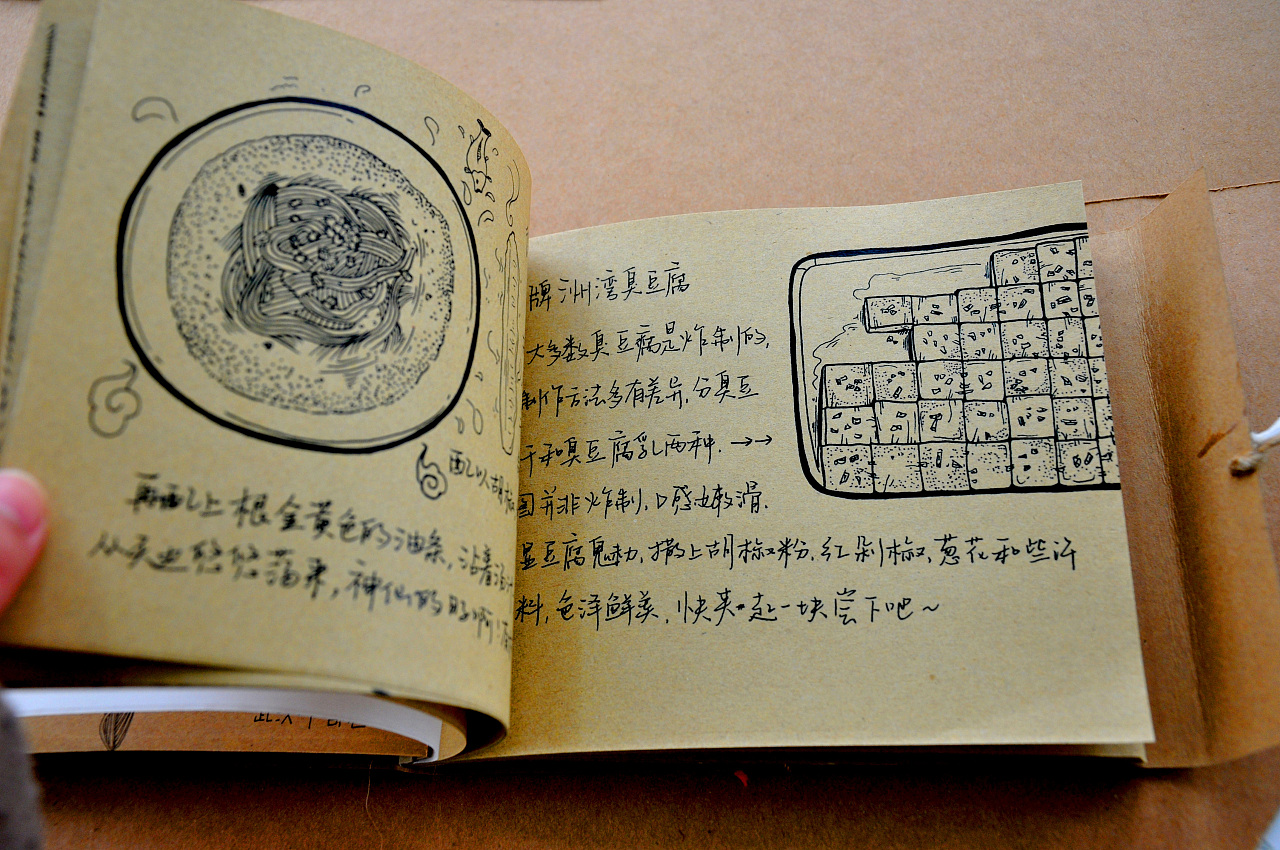 配以胡
再配上根金黄色的油条,沾着
从天边悠悠荡来,神仙的
牌洲湾臭豆腐
大多数臭豆腐是炸制的,
制作方法多有差异,分臭豆
干和臭豆腐乳两种.→→
图并非炸制,口感也较滑.
显豆腐魅力,撒上胡椒粉.红剁椒,葱花和些汁
料,色泽鲜美,快夹起一块尝下吧~